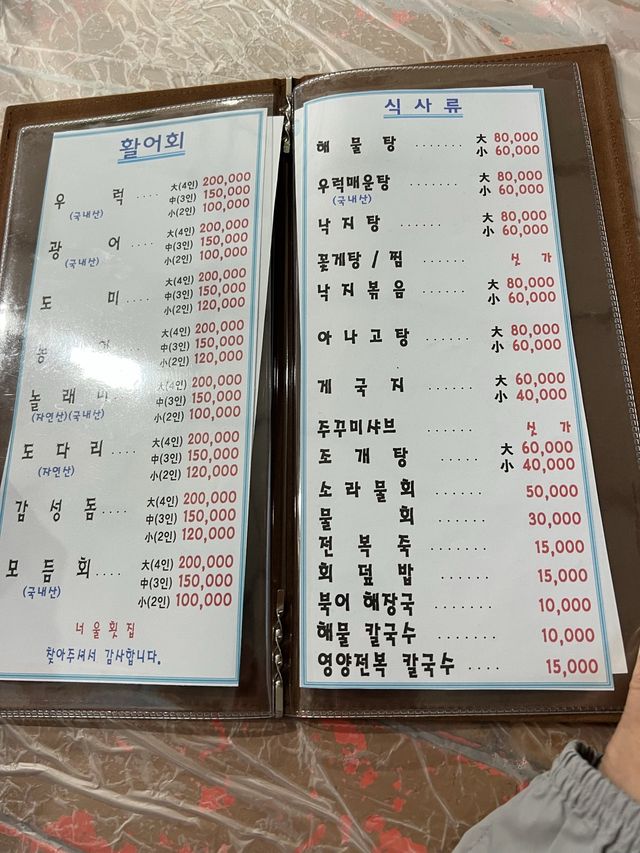 활어회
우 럭 .... 大(4인) 200,000
(국내산) 中(3인) 150,000
小(2인) 100,000
광 어 .... 大(4인) 200,000
(국내산) 中(3인) 150,000
小(2인) 100,000
도 미 .... 大(4인) 200,000
中(3인) 150,000
小(2인) 120,000
大(4인) 200,000
中(3인) 150,000
小(2인) 120,000
놀 래 미 大(4인) 200,000
(자연산)(국내산) 中(3인) 150,000
小(2인) 100,000
도 다 리 .... 大(4인) 200,000
(자연산) 中(3인) 150,000
小(2인) 120,000
감 성 돔 .... 大(4인) 200,000
中(3인) 150,000
小(2인) 120,000
모 듬 회 .... 大(4인) 200,000
(국내산) 中(3인) 150,000
小(2인) 100,000
너 울 횟 집
찾아주셔서 감사합니다.
식 사 류
해 물 탕 ....... 大 80,000
小 60,000
우럭매운탕 ...... 大 80,000
(국내산) 小 60,000
낙 지 탕 ...... 大 80,000
小 60,000
꽃게탕 / 찜 ...... 싯 가
낙 지 볶 음 ...... 大 80,000
小 60,000
아 나 고 탕 ...... 大 80,000
小 60,000
게 국 지 ...... 大 60,000
小 40,000
주꾸미샤브 ...... 싯 가
조 개 탕 ...... 大 60,000
小 40,000
소 라 물 회 ...... 50,000
물 회 ...... 30,000
전 복 죽 ....... 15,000
회 덮 밥 ...... 15,000
북어 해장국 ...... 10,000
해물 칼국수 ...... 10,000
영양전복 칼국수 .... 15,000